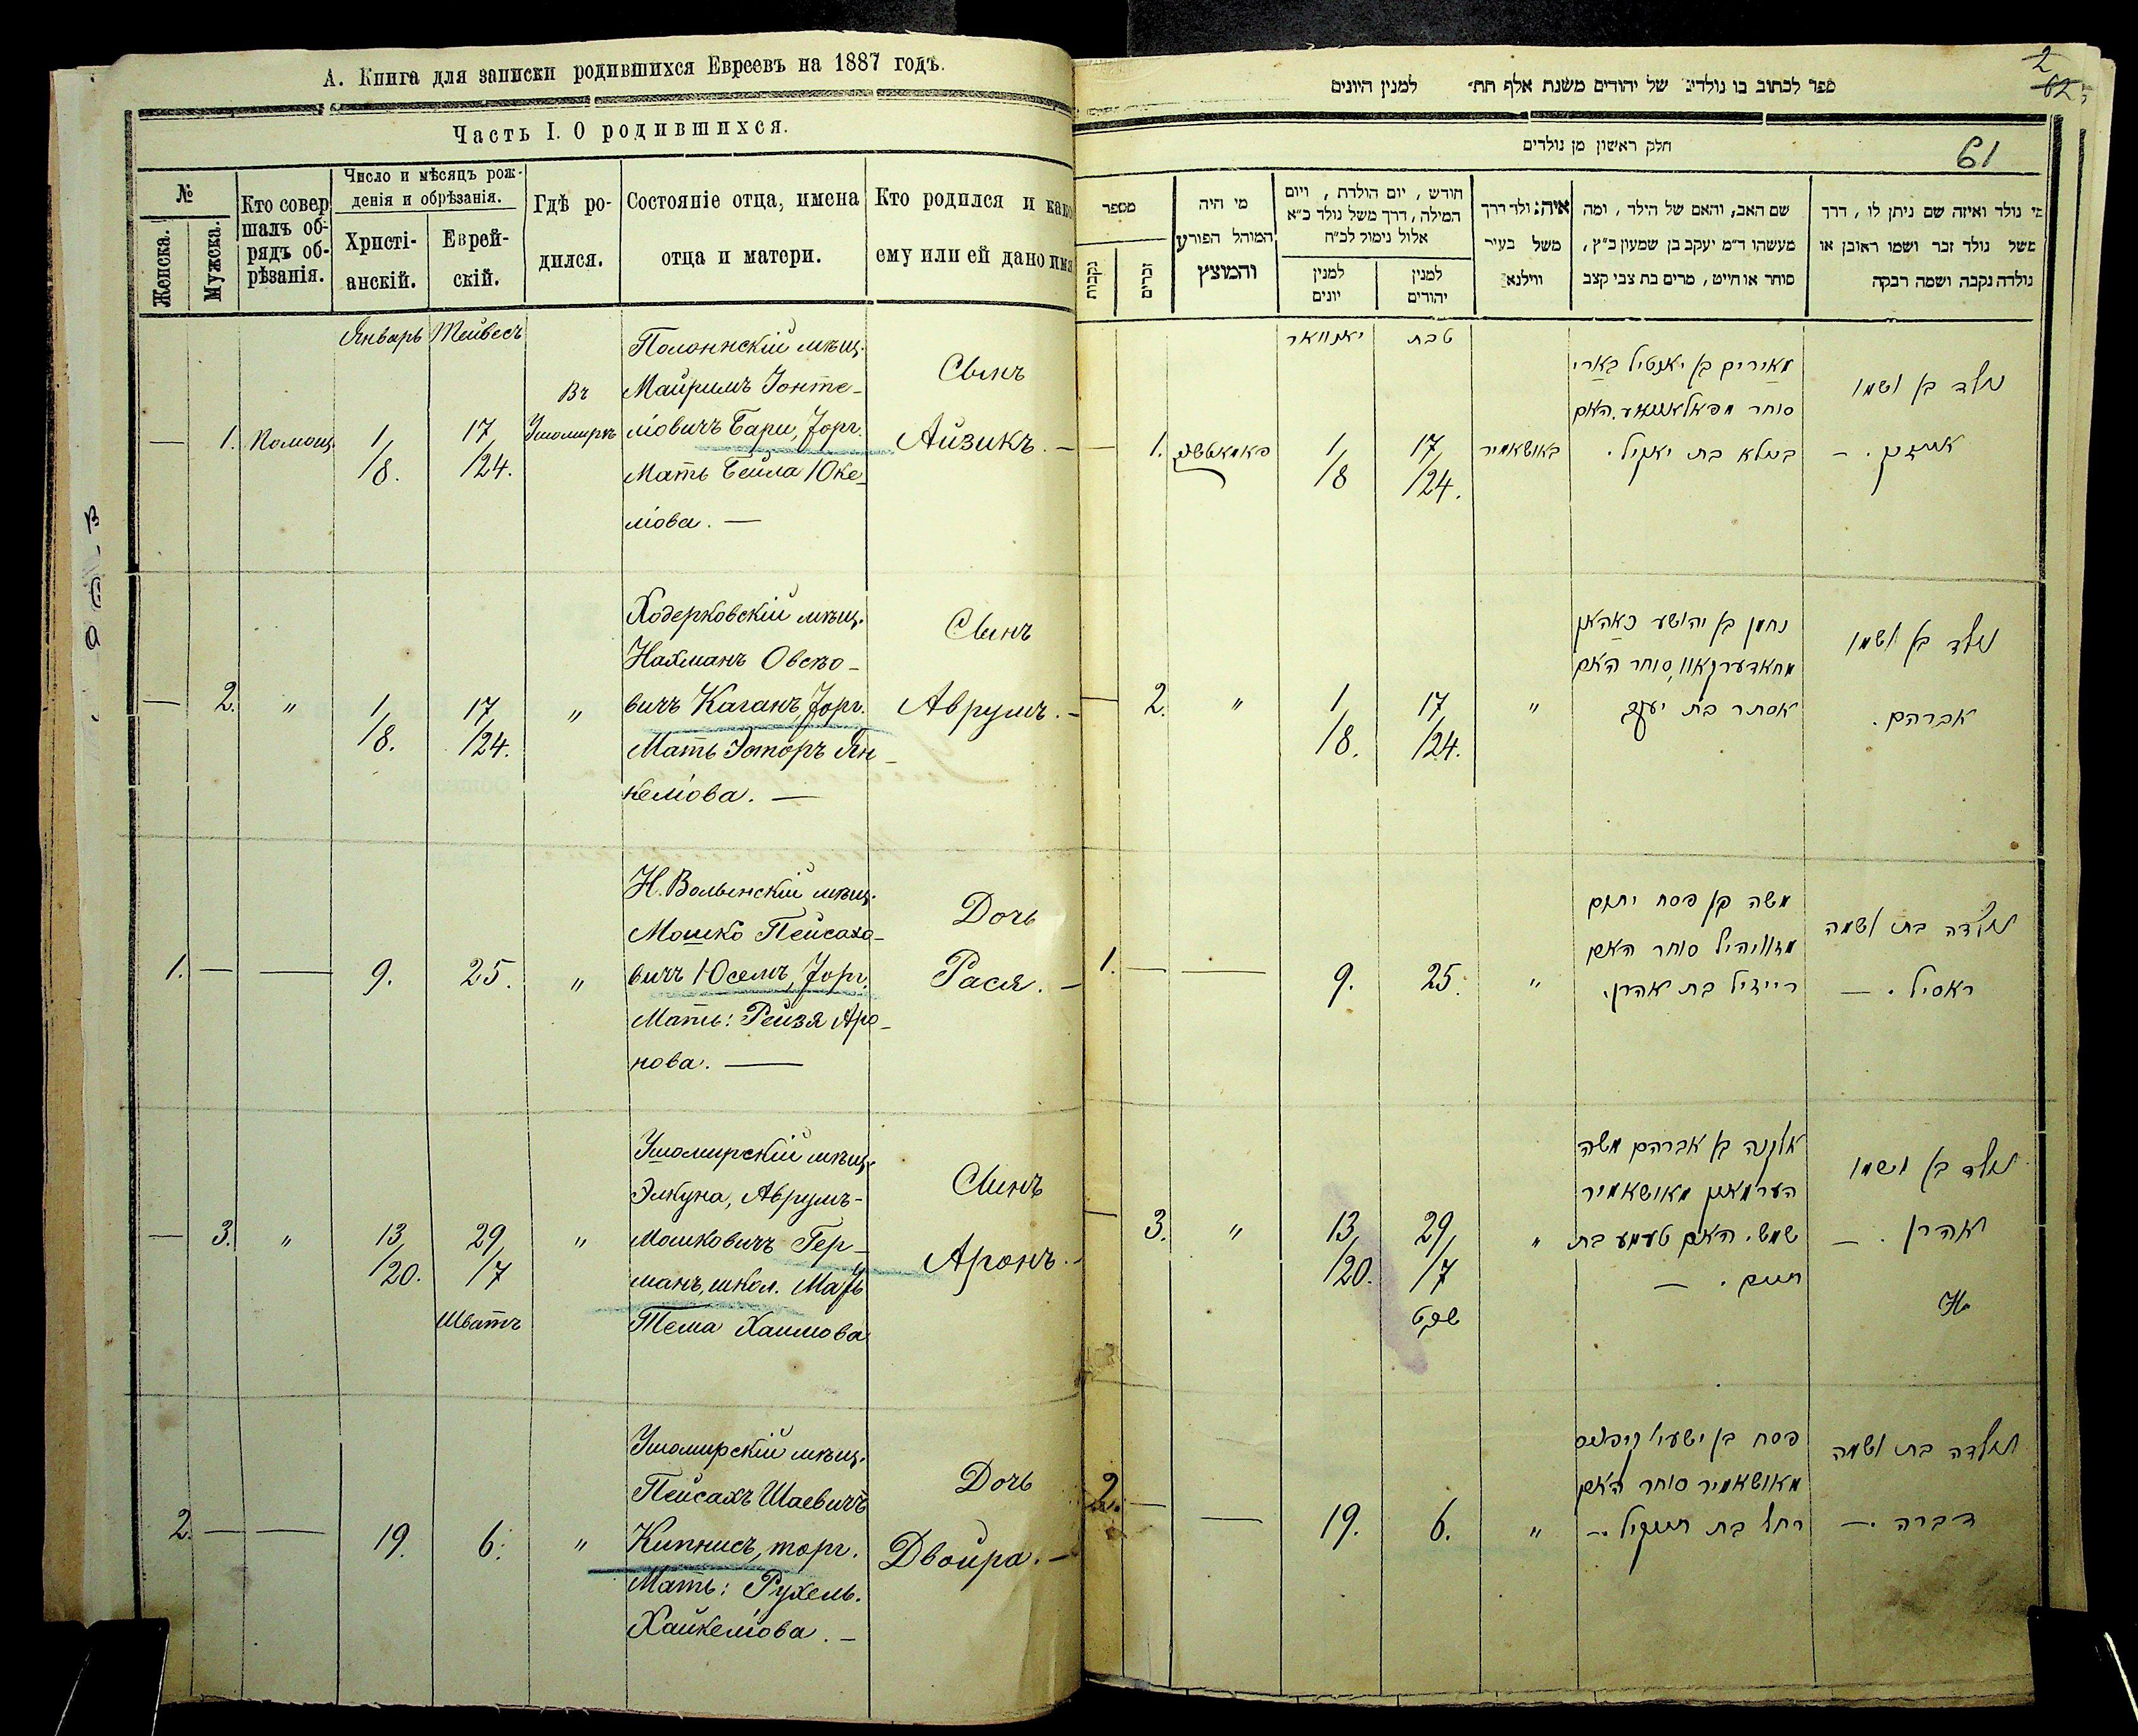 А. Книга для записки родившихся Евреевъ на 1887 годъ.
Часть I. О родившихся.
№
Женска.
Мужска.
Кто совер
шалъ об-
рядъ об-
рѣзанія.
Число и мѣсяцъ рож-
денія и обрѣзанія.
Христі-
анскій.
Еврей-
скій.
Гдѣ ро-
дился.
Состояніе отца, имена
отца и матери.
Кто родился и како
ему или ей дано имя
Январь Тейвесъ
— 1. Помощ. 1/8. 17/24.
Въ
Ушомирѣ
Полоннскій мѣщ.
Майримъ Іонте-
ліовичъ Бари, Торг.
Мать Бейла Юке-
ліова. —
Сынъ
Айзикъ. —
— 2. " 1/8. 17/24. "
Ходерковскій мѣщ.
Нахманъ Овсѣо-
вичъ Каганъ, Торг.
Мать Эторъ Ян-
келіова. —
Сынъ
Аврумъ. —
1. — — 9. 25. "
Н. Волынскій мѣщ.
Мошко Пейсахо-
вичъ Юсемъ, Торг.
Мать: Рейзя Аро-
нова. —
Дочь
Рася. —
— 3. " 13/20. 29/7 "
Шватъ
Ушомирскій мѣщ.
Элкуна, Аврумъ-
Мошковичъ Гер-
манъ, школ. Мать
Тема Хаимова
Сынъ
Аронъ. —
2. — — 19. 6. "
Ушомирскій мѣщ.
Пейсахъ Шаевичъ
Кипнисъ, торг.
Мать: Рухель.
Хайкеліова. —
Дочь
Двойра. —
2
62
ספר לכתוב בו נולדים של יהודים משנת אלף תת״ למנין היונים
חלק ראשון מן נולדים
61
מספר
נקבות
זכרים
מי היה
המוהל הפורע
והמוצץ
חודש, יום הולדת, ויום
המילה, דרך משל נולד כ״א
אלול נימול לכ״ח
למנין
יונים
למנין
יהודים
איה נולד דרך
משל בעיר
ווילנא
שם האב, והאם של הילד, ומה
מעשהו ד״מ יעקב בן שמעון כ״ץ,
סוחר או חייט, מרים בת צבי קצב
מי נולד ואיזה שם ניתן לו, דרך
משל נולד זכר ושמו ראובן או
נולדה נקבה ושמה רבקה
יאנוואר טבת
— 1. פאמאטשפ 1/8 17/24. באושאמיר
מאירים בן יאנטיל בארי
סוחר מפאלאנאע. האם
ביילא בת יאקיל.
נולד בן ושמו
אייזיק. —
— 2. " 1/8. 17/24. "
נחמן בן יהושע כאהאן
מחאדערקאוו, סוחר האם
אסתר בת יעקב
נולד בן ושמו
אברהם.
1. — — 9. 25. "
משה בן פסח יתום
מזוויהיל סוחר האם
רייזיל בת אהרן.
נולדה בת ושמה
ראסיל. —
— 3. " 13/20. 29/7 "
שבט
אלקנה בן אברהם משה
הערמאן מאושאמיר
שמש. האם טעמע בת
חיים. —
נולד בן ושמו
אהרן. —
2. — — 19. 6. "
פסח בן ישעי׳ קיפניס
מאושאמיר סוחר האם
רחל בת חייקיל. —
נולדה בת ושמה
דברה. —